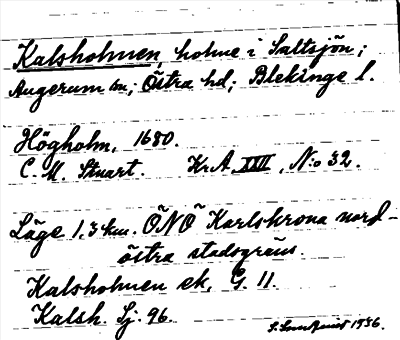 Kalsholmen, holme i Saltsjön;
Augerum sn; Östra hd; Blekinge l.
Högholm, 1680.
C. M. Stuart. Kr.A. XXII, N:o 32.
Läge 1,3 km. ÖNÖ Karlskrona nord-
östra stadsgräns.
Kalsholmen ek, G. 11.
Kalsh. Sj. 96.
S. Lundquist 1936.